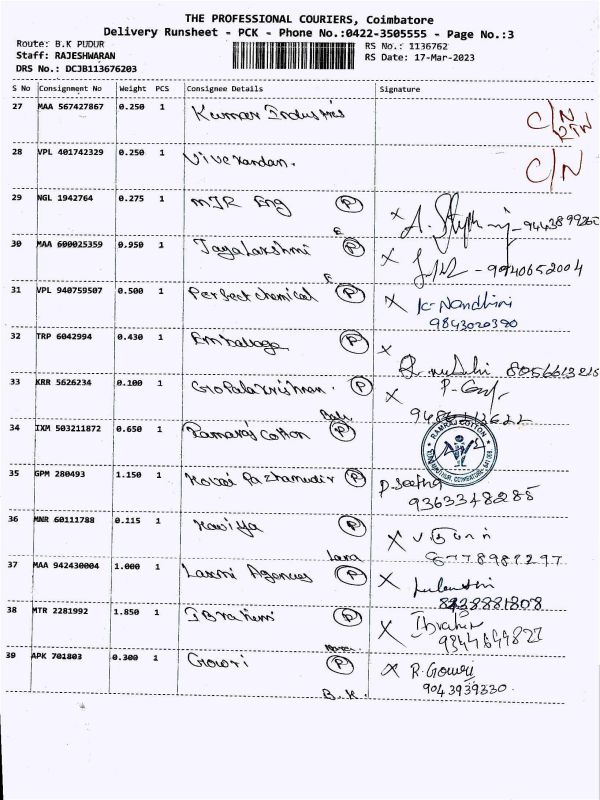 THE PROFESSIONAL COURIERS, Coimbatore
Delivery Runsheet - PCK - Phone No.:0422-3505555 - Page No.:3
Route: B.K PUDUR
RS No.: 1136762
Staff: RAJESHWARAN
RS Date: 17-Mar-2023
DRS No.: DCJB113676203
S No Consignment No Weight PCS Consignee Details Signature
27 MAA 567427867 0.250 1 Kumar Industris C/N RTN
28 VPL 401742329 0.250 1 Vivekandan. C/N
29 NGL 1942764 0.275 1 MJR Eng P X
E
30 MAA 600025359 0.950 1 Jayalakshmi P X - 9940652004
E
31 VPL 940759507 0.500 1 Perfect chemical P X K. Nandhini
9843020390
32 TRP 6042994 0.430 1 P X
8056613215
33 KRR 5626234 0.100 1 Gopalakrishnan. P X
34 IXM 503211872 0.650 1 Ramraj Cotton P RAMRAJ COTTON
35 GPM 280493 1.150 1 Kovai Pazhamudir P P. Seetha
9363348285
36 MNR 60111788 0.115 1 Kaviya P X
8778987297
37 MAA 942430004 1.000 1 Laxmi Agencies P X
8438881808
38 MTR 2281992 1.850 1 Ibrahim P X Ibrahim
9344644827
39 APK 701803 0.300 1 Gowri P X R. Gowri
9043939330.
B.K.